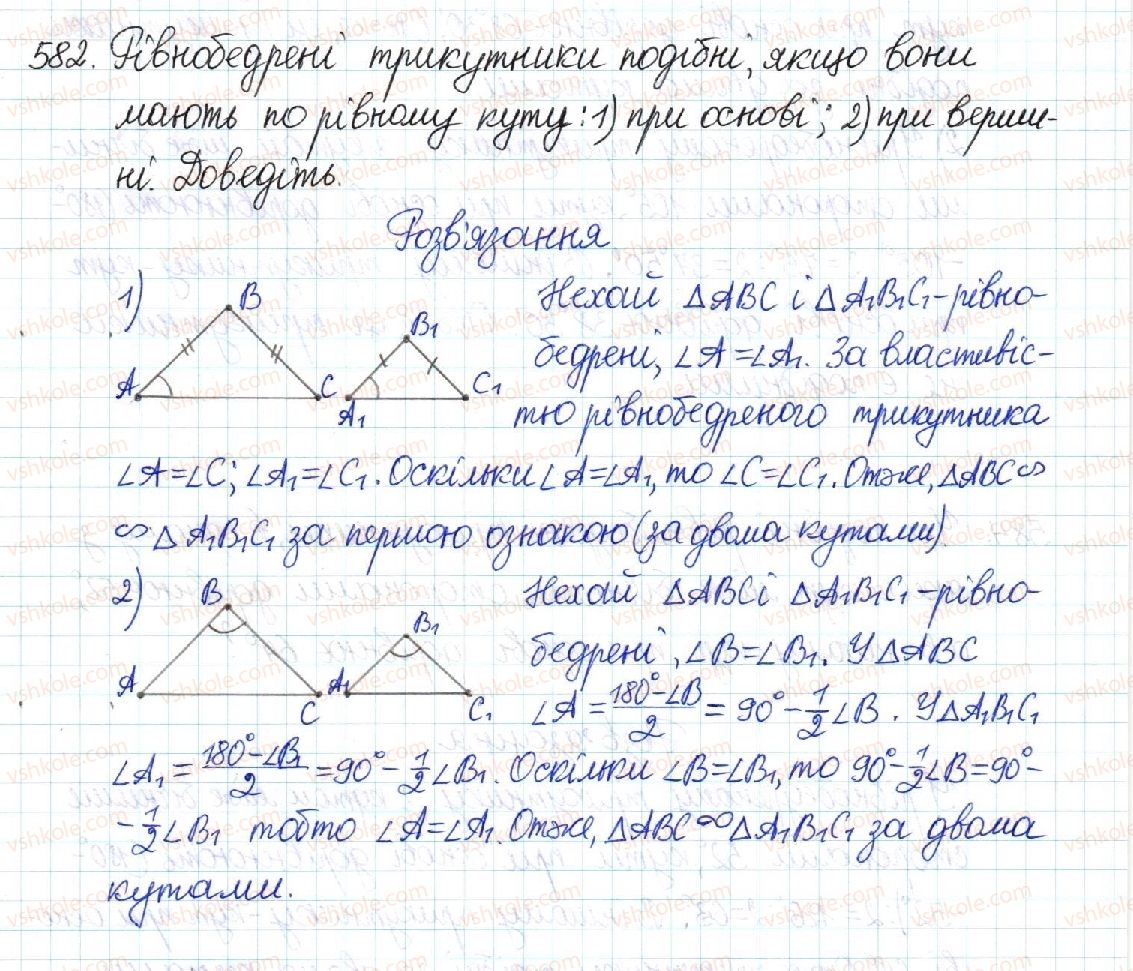 582. Рівнобедрені трикутники подібні, якщо вони
мають по рівному куту: 1) при основі; 2) при верши-
ні. Доведіть.
Розв'язання
1)
B
B₁
A
C
A₁
C₁
Нехай △ABC і △A₁B₁C₁-рівно-
бедрені, ∠A=∠A₁. За властивіс-
тю рівнобедреного трикутника
∠A=∠C; ∠A₁=∠C₁. Оскільки ∠A=∠A₁, то ∠C=∠C₁. Отже, △ABC∽
∽△A₁B₁C₁ за першою ознакою (за двома кутами)
2)
B
B₁
A
C
A₁
C₁
Нехай △ABC і △A₁B₁C₁-рівно-
бедрені, ∠B=∠B₁. У △ABC
∠A = (180°-∠B)/2 = 90° - 1/2∠B. У △A₁B₁C₁
∠A₁ = (180°-∠B₁)/2 = 90° - 1/2∠B₁. Оскільки ∠B=∠B₁, то 90°-1/2∠B=90°-
-1/2∠B₁ тобто ∠A=∠A₁. Отже, △ABC∽△A₁B₁C₁ за двома
кутами.
vshkole.com